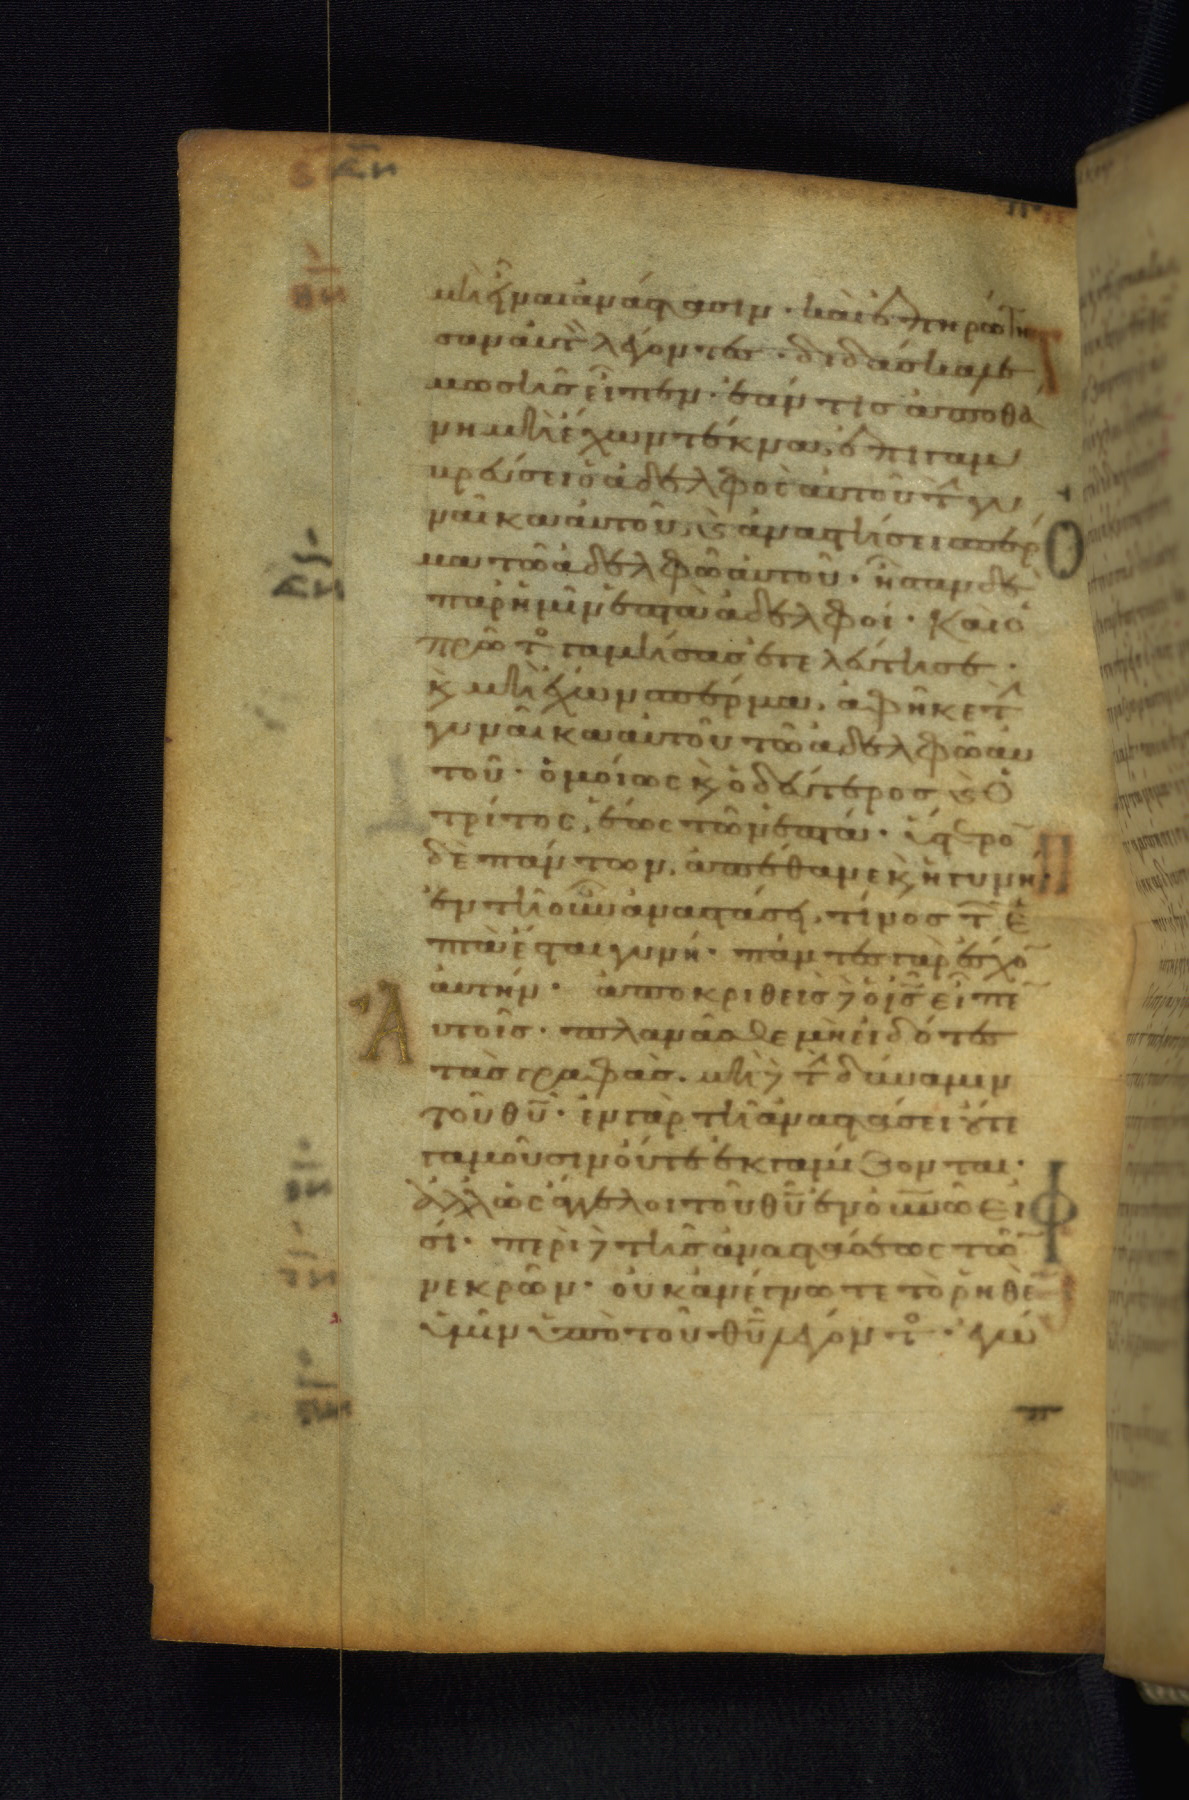 μὴ εἶναι ἀνάστασιν· καὶ ἐπηρώτη
σαν αὐτὸν λέγοντες· διδάσκαλε
μωσῆς εἶπεν· ἐάν τις ἀποθά
νη μὴ ἔχων τέκνα, ἐπιγαμ
βρεύσει ὁ ἀδελφὸς αὐτοῦ τὴν γυ
ναῖκα αὐτοῦ, καὶ ἀναστήσει σπέρ
μα τῶ ἀδελφῶ αὐτοῦ· ἦσαν δὲ
παρ' ἡμῖν ἑπτὰ ἀδελφοί· καὶ ὁ
πρῶτος γαμήσας ἐτελεύτησε·
καὶ μὴ ἔχων σπέρμα, ἀφῆκε τὴν
γυναῖκα αὐτοῦ τῶ ἀδελφῶ αὐ
τοῦ· ὁμοίως καὶ ὁ δεύτερος καὶ ὁ
τρίτος, ἕως τῶν ἑπτά· ὕστερον
δὲ πάντων, ἀπέθανε καὶ ἡ γυνή·
ἐν τῆ οὖν ἀναστάσει, τίνος τῶν ἑ
πτὰ ἔσται γυνή· πάντες γὰρ ἔσχον
αὐτήν· ἀποκριθεὶς δὲ ὁ ις εἶπεν
Αὐτοῖς· πλανᾶσθε μὴ εἰδότες
τὰς γραφὰς. μὴ δὲ τὴν δύναμιν
τοῦ θυ· ἐν γὰρ τῆ ἀναστάσει οὔτε
γαμοῦσιν οὔτε ἐκγαμίζονται·
ἀλλ' ὡς ἄγγελοι τοῦ θυ ἐν οὐνῶ εἰ
σί· περὶ δὲ τῆς ἀναστάσεως τῶν
νεκρῶν· οὐκ ἀνέγνωτε τὸ ῥηθὲν
ὑμῖν ὑπὸ τοῦ θυ λέγοντος· ἐγώ